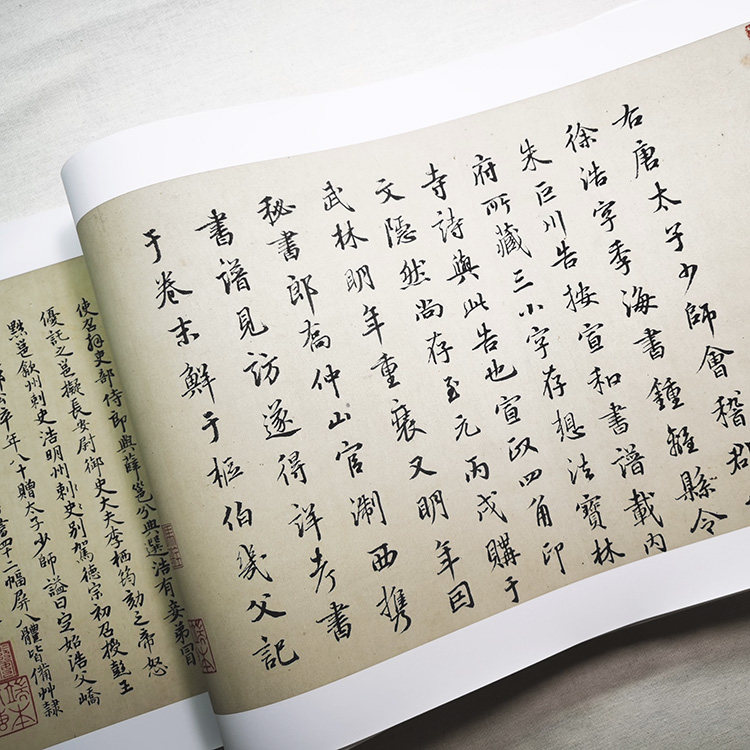 右唐太子少師會稽郡
徐浩字季海書鍾離縣令
朱巨川告按宣和書譜載内
府所藏三小字存想法寶林
寺詩與此告也宣政四角印
文隱然尚存至元丙戌購于
武林明年重裝又明年因
秘書郎喬仲山官淛西携
書譜見訪遂得詳考書
于卷末鮮于樞伯幾父記
使召拜吏部侍郎與薛邕分典選浩有妾弟冒
優託之邕擬長安尉御史大夫李栖筠劾之帝怒
黜邕歙州刺史浩明州刺史别駕德宗初召授彭王
卒年八十贈太子少師謚曰定始浩父嶠
書四十二幅屏八體皆備艸隸